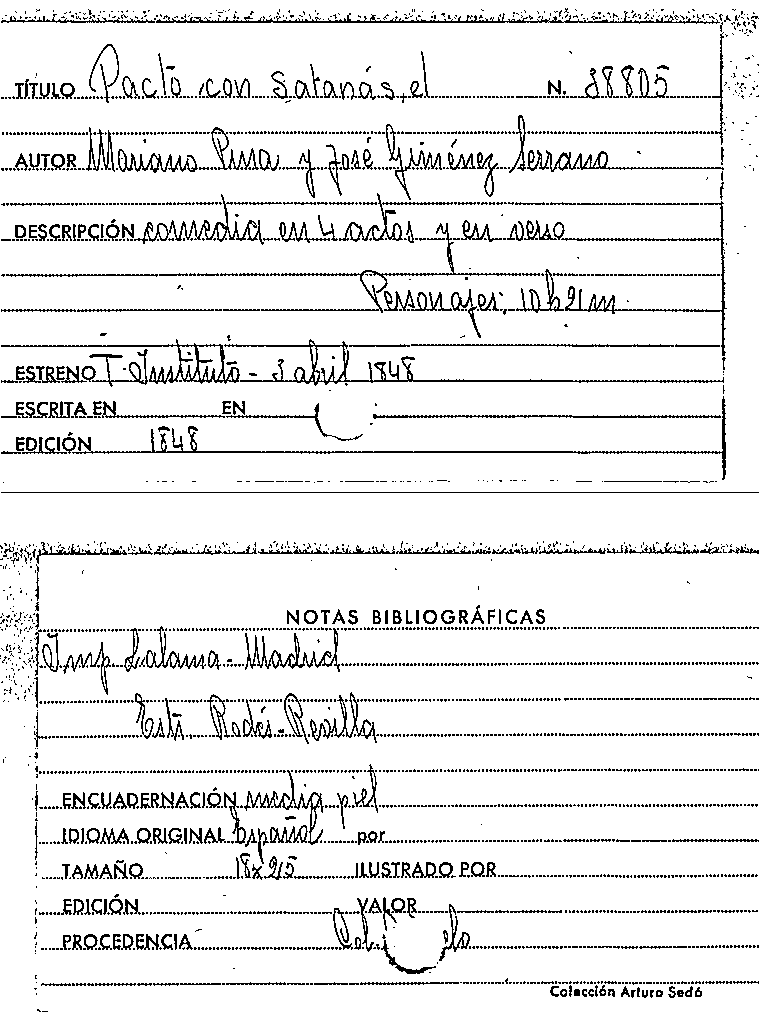 TÍTULO Pacto con Satanás, el N. 38805
AUTOR Mariano Pina y José Giménez Serrano
DESCRIPCIÓN comedia en 4 actos y en verso
Personajes: 10 h 21 m
ESTRENO T. Instituto - 3 abril 1848
ESCRITA EN EN
EDICIÓN 1848
NOTAS BIBLIOGRÁFICAS
Imp Lalama - Madrid
Estr. Rodés - Revilla
ENCUADERNACIÓN media piel
IDIOMA ORIGINAL Español por
TAMAÑO 18x25 ILUSTRADO POR
EDICIÓN VALOR
PROCEDENCIA
Colección Arturo Sedó